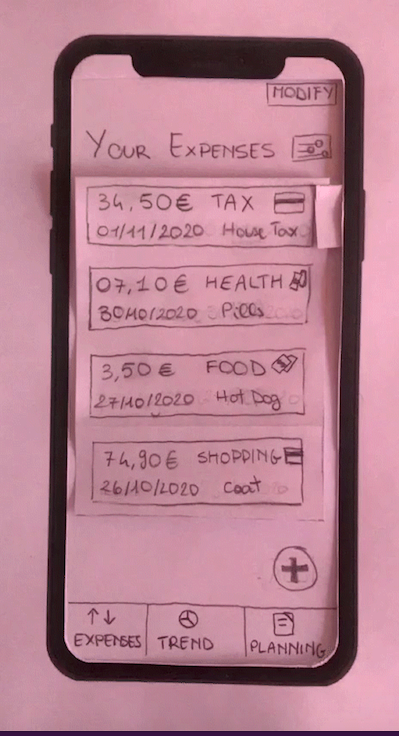 MODIFY
YOUR EXPENSES
34,50€ TAX
01/11/2020 House Tax
07,10€ HEALTH
30/10/2020 Pills
3,50€ FOOD
27/10/2020 Hot Dog
74,90€ SHOPPING
26/10/2020 Coat
+
EXPENSES TREND PLANNING